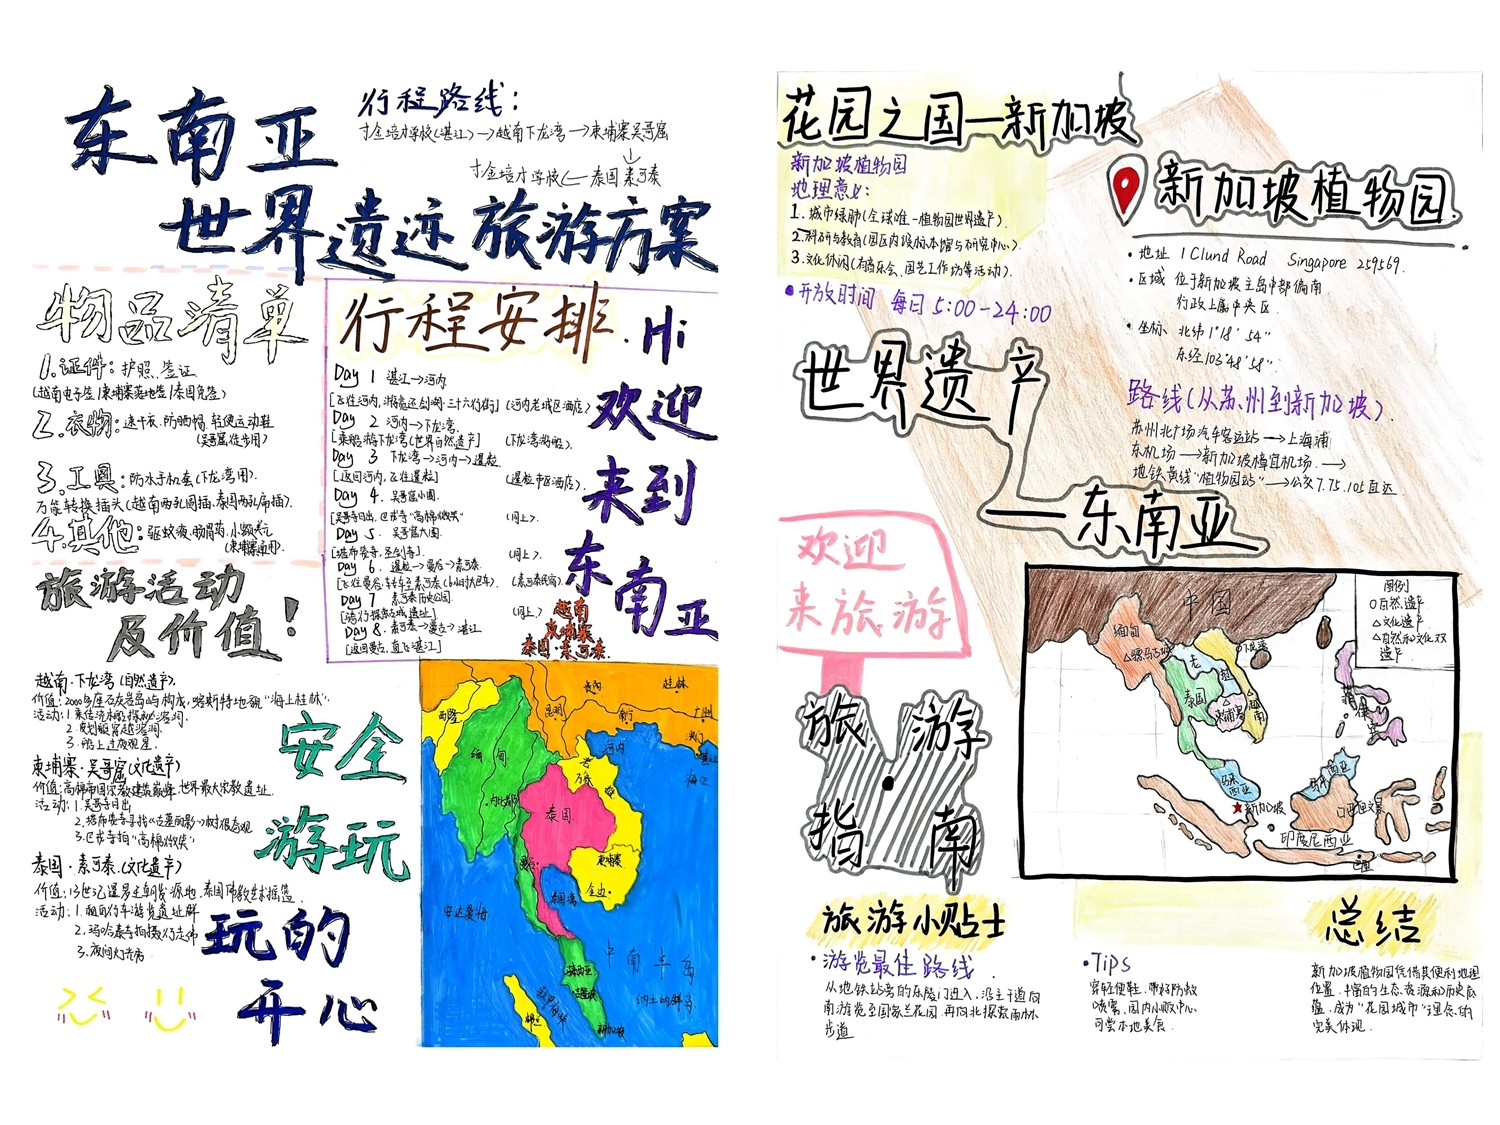 东南亚
世界遗迹旅游方案
行程路线：
寸金培才学校(湛江)→越南下龙湾→柬埔寨吴哥窟
↓
寸金培才学校←泰国素可泰
物品清单
1.证件：护照、签证
(越南电子签/柬埔寨落地签/泰国免签)
2.衣物：速干衣、防晒帽、轻便运动鞋
(吴哥窟徒步用)
3.工具：防水手机套(下龙湾用).
万能转换插头(越南两孔圆插、泰国两孔扁插).
4.其他：驱蚊液、肠胃药、小额美元
(柬埔寨通用).
行程安排.
Day 1 湛江→河内
[飞往河内,游览还剑湖·三十六行街] (河内老城区酒店)
Day 2 河内→下龙湾.
[乘船游下龙湾(世界自然遗产] (下龙湾游船).
Day 3 下龙湾→河内→暹粒
[返回河内,飞往暹粒] (暹粒市区酒店).
Day 4. 吴哥窟小圈.
[吴哥寺日出,巴戎寺"高棉的微笑" (同上).
Day 5. 吴哥窟大圈.
[塔布茏寺,圣剑寺]. (同上).
Day 6. 暹粒→曼谷→素可泰.
[飞往曼谷,转车至素可泰(6小时大巴车). (素可泰民宿).
Day 7 素可泰历史公园.
[骑行探索古城遗址] (同上)
Day 8. 素可泰→曼谷→湛江
[返回曼谷,直飞湛江]
Hi
欢迎
来到
东
南亚
越南
柬埔寨
泰国·素可泰.
旅游活动
及价值！
越南·下龙湾(自然遗产).
价值:2000多座石灰岩岛屿构成,喀斯特地貌"海上桂林".
活动:1.乘传统木船探秘溶洞.
2.皮划艇穿越溶洞.
3.船上过夜观星.
柬埔寨·吴哥窟(文化遗产)
价值:高棉帝国宗教建筑巅峰,世界最大宗教遗址.
活动:1.吴哥寺日出
3.巴戎寺拍"高棉微笑"
泰国·素可泰.(文化遗产)
价值:13世记暹罗王朝发源地,泰国佛教艺术摇篮.
活动:1.租自行车游览遗址群
3.夜间灯光秀
安全
游玩
玩的
开心
贵阳
桂林
昆明
南宁
广州
澳门
湛江
海口
西隆
缅甸
内比都
河内
老挝
万象
泰国
曼谷
柬埔寨
金边
泰国湾
安达曼海
中南半岛
马来西亚
吉隆坡
新加坡
棉兰
花园之国—新加坡
新加坡植物园
地理意义:
1.城市绿肺(全球唯一植物园世界遗产).
2.科研与教育(园区内设标本馆与研究中心).
3.文化休闲(有音乐会、园艺工作坊等活动).
•开放时间 每日5:00-24:00
新加坡植物园.
•地址 1 Clund Road Singapore 259569.
•区域 位于新加坡主岛中部偏南
行政上属中央区.
•坐标 北纬1°18′54″
东经103°48′58″.
路线(从苏州到新加坡).
苏州北广场汽车客运站→上海浦
东机场→新加坡樟宜机场.→
地铁黄线"植物园站"→公交7.75.105直达
世界遗产
—东南亚
欢迎
来旅游
图例
○自然遗产
△文化遗产
△自然和文化双
遗产
中国
缅甸
老
泰国
柬埔寨
越南
菲律宾
马来西亚
★新加坡
印度尼西亚
旅游
指南
旅游小贴士
•游览最佳路线.
从地铁站旁的东陵门进入,沿主干道向
南游览至国家兰花园.再向北探索雨林
步道
•Tips
穿轻便鞋,带好防蚊
喷雾,园内小贩中心
可尝本地美食.
总结
新加坡植物园凭借其便利地理
位置,丰富的生态资源和历史底
蕴,成为"花园城市"理念的
完美体现.